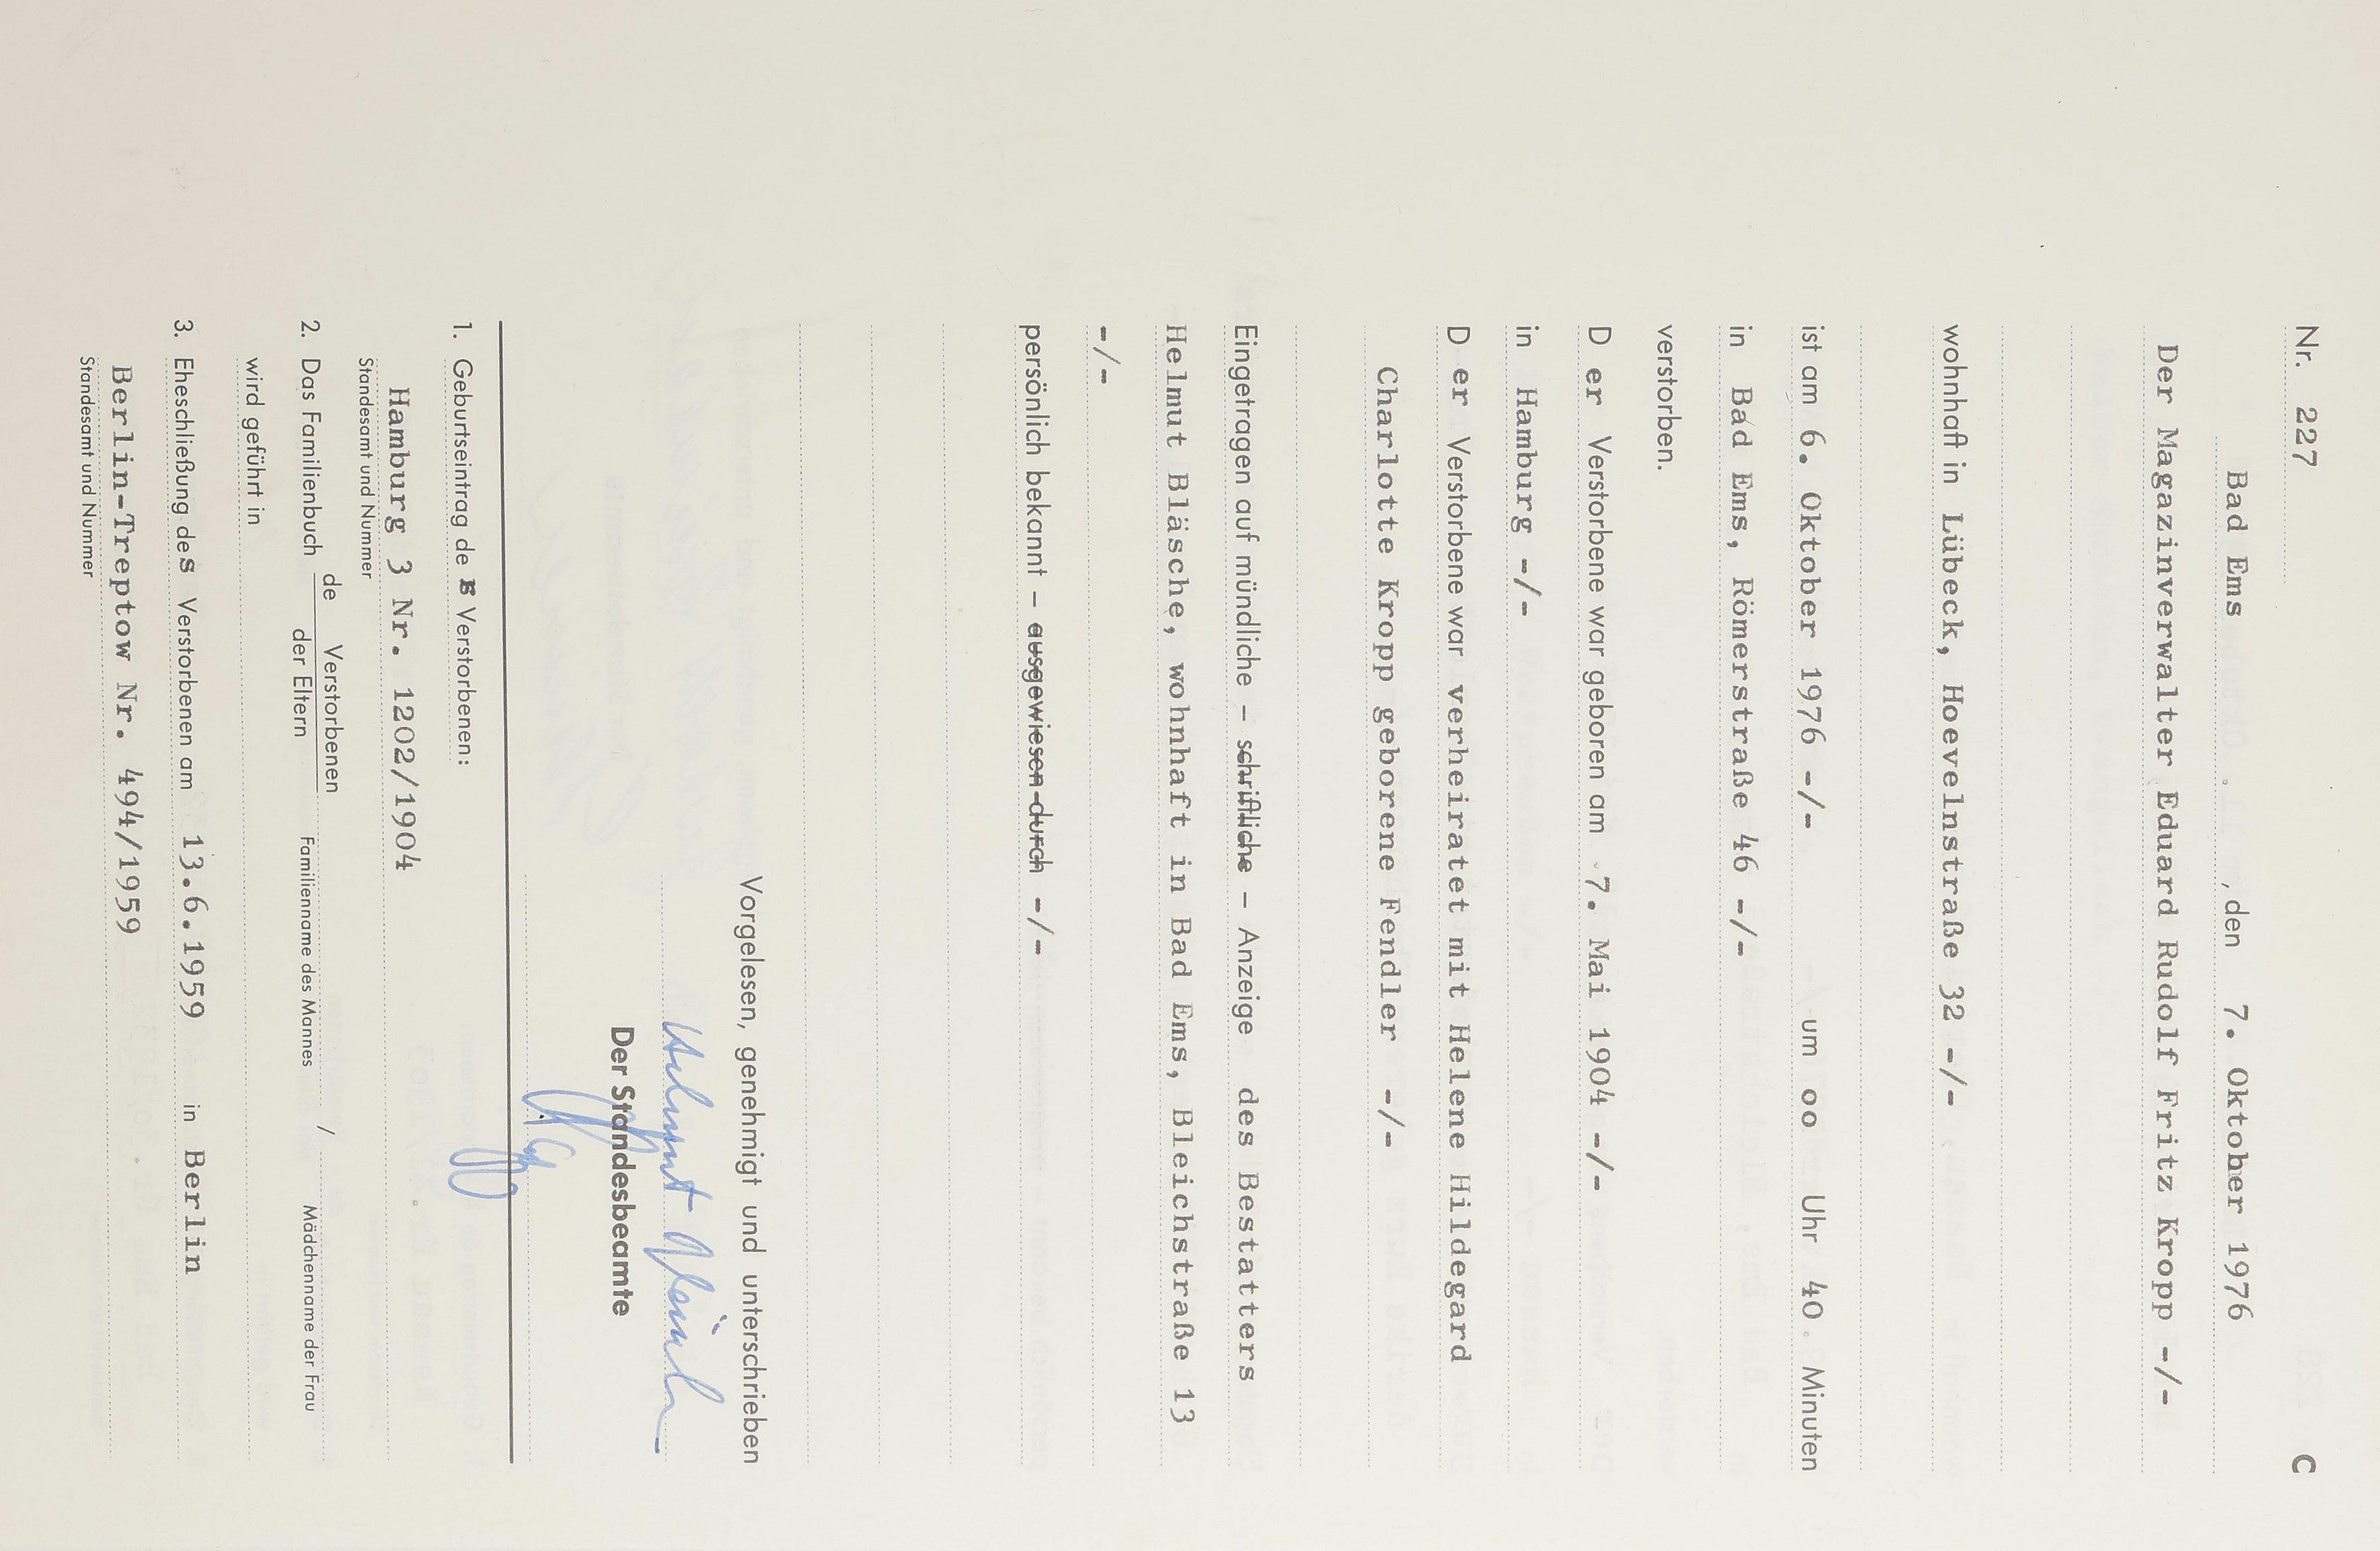 Nr. 227 C
Bad Ems , den 7. Oktober 1976
Der Magazinverwalter Eduard Rudolf Fritz Kropp -/-
wohnhaft in Lübeck, Hoevelnstraße 32 -/-
ist am 6. Oktober 1976 -/- um oo Uhr 40 Minuten
in Bad Ems, Römerstraße 46 -/-
verstorben.
D er Verstorbene war geboren am 7. Mai 1904 -/-
in Hamburg -/-
D er Verstorbene war verheiratet mit Helene Hildegard
Charlotte Kropp geborene Fendler -/-
Eingetragen auf mündliche – schriftliche – Anzeige des Bestatters
Helmut Bläsche, wohnhaft in Bad Ems, Bleichstraße 13
-/-
persönlich bekannt – ausgewiesen durch -/-
Vorgelesen, genehmigt und unterschrieben
Helmut Bläsche
Der Standesbeamte
1. Geburtseintrag de s Verstorbenen:
Hamburg 3 Nr. 1202/1904
Standesamt und Nummer
2. Das Familienbuch de Verstorbenen
der Eltern Familienname des Mannes / Mädchenname der Frau
wird geführt in
3. Eheschließung des Verstorbenen am 13.6.1959 in Berlin
Berlin-Treptow Nr. 494/1959
Standesamt und Nummer